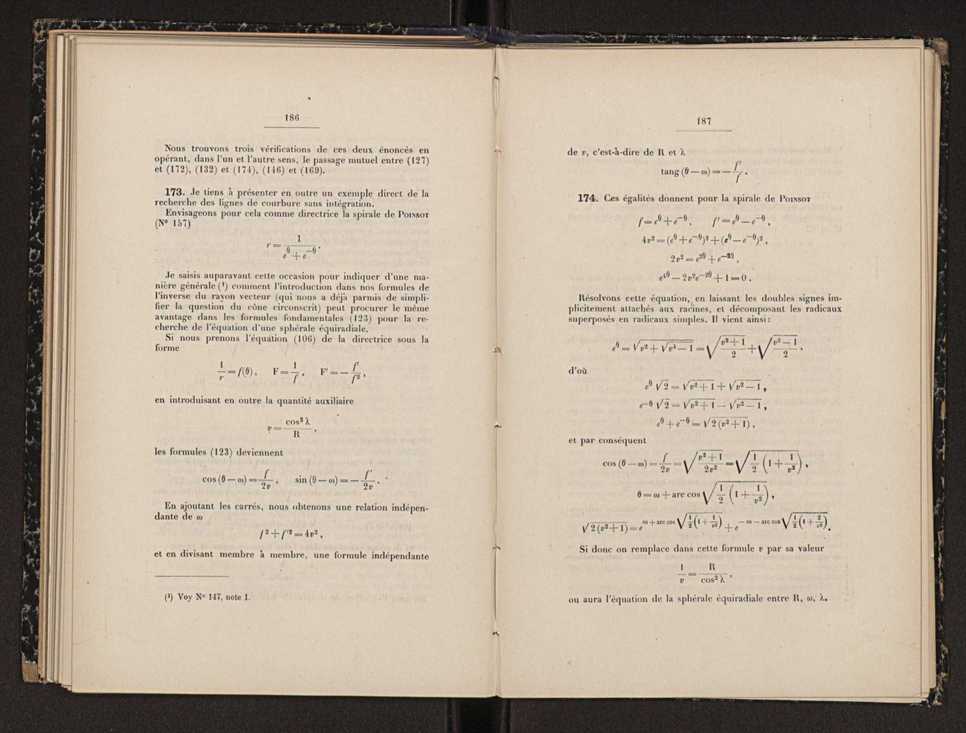 186
Nous trouvons trois vérifications de ces deux énoncés en
opérant, dans l'un et l'autre sens, le passage mutuel entre (127)
et (172), (132) et (174), (146) et (169).
173. Je tiens à présenter en outre un exemple direct de la
recherche des lignes de courbure sans intégration.
Envisageons pour cela comme directrice la spirale de Poinsot
(Nº 157)
r = 1 / (e^θ + e^−θ).
Je saisis auparavant cette occasion pour indiquer d'une ma-
nière générale (¹) comment l'introduction dans nos formules de
l'inverse du rayon vecteur (qui nous a déjà parmis de simpli-
fier la question du cône circonscrit) peut procurer le même
avantage dans les formules fondamentales (123) pour la re-
cherche de l'équation d'une sphérale équiradiale.
Si nous prenons l'équation (106) de la directrice sous la
forme
1/r = f(θ), F = 1/f, F' = − f'/f²,
en introduisant en outre la quantité auxiliaire
v = cos² λ / R,
les formules (123) deviennent
cos (θ — ω) = f/2v, sin (θ — ω) = — f'/2v.
En ajoutant les carrés, nous obtenons une relation indépen-
dante de ω
f² + f'² = 4v²,
et en divisant membre à membre, une formule indépendante
(¹) Voy Nº 147, note 1.
187
de v, c'est-à-dire de R et λ
tang (θ — ω) = — f'/f.
174. Ces égalités donnent pour la spirale de Poinsot
f = e^θ + e^−θ, f' = e^θ — e^−θ,
4v² = (e^θ + e^−θ)² + (e^θ — e^−θ)²,
2v² = e^2θ + e^−2θ,
e^4θ — 2v²e^−2θ + 1 = 0.
Résolvons cette équation, en laissant les doubles signes im-
plicitement attachés aux racines, et décomposant les radicaux
superposés en radicaux simples. Il vient ainsi:
e^θ = √(v² + √(v⁴ — 1)) = √((v² + 1)/2) + √((v² — 1)/2),
d'où
e^θ √2 = √(v² + 1) + √(v² — 1),
e^−θ √2 = √(v² + 1) — √(v² — 1),
e^θ + e^−θ = √(2 (v² + 1)),
et par conséquent
cos (θ — ω) = f/2v = √((v² + 1)/2v²) = √(1/2 (1 + 1/v²)),
θ = ω + arc cos √(1/2 (1 + 1/v²)),
√(2 (v² + 1)) = e^(ω + arc cos √(1/2 (1 + 1/v²))) + e^(− ω — arc cos √(1/2 (1 + 2/v²))).
Si donc on remplace dans cette formule v par sa valeur
1/v = R / cos² λ,
ou aura l'équation de la sphérale équiradiale entre R, ω, λ.